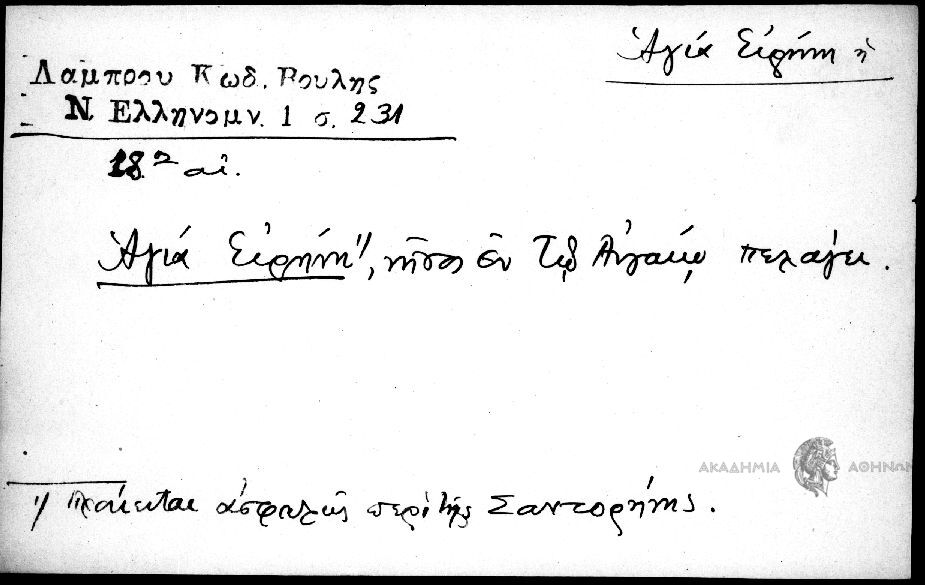 Ἁγία Εἰρήνη ἡ
Λαμπρου Κωδ. Βουλης
Ν. Ελληνομν. 1 σ. 231
18ου αἰ.
Ἁγία Εἰρήνη 1/, νῆσος ἐν τῷ Αἰγαίῳ πελάγει.
ΑΚΑΔΗΜΙΑ ΑΘΗΝΩΝ
1/ Πρόκειται ἀσφαλῶς περὶ τῆς Σαντορήνης.